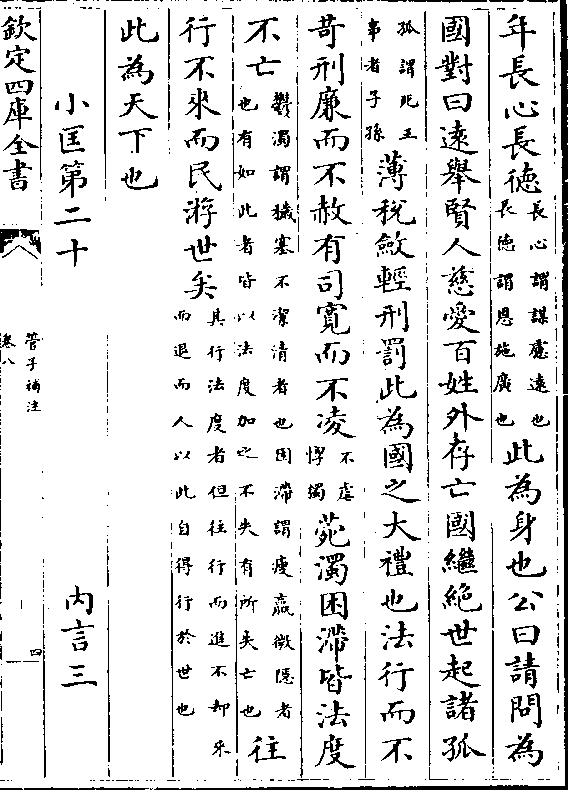 年長心長德長心謂謀慮遠也長德謂恩施廣也此為身也公曰請問為
國對曰遠舉賢人慈愛百姓外存亡國繼絶世起諸孤
孤謂死王事者子孫薄税斂輕刑罰此為國之大禮也法行而不
苛刑廉而不赦有司寛而不凌不虐惸獨菀濁困滯皆法度
不亡鬱濁謂穢塞不潔清者也困滯謂瘦羸微隱者也有如此者皆以法度加之不失有所失亡也往
行不來而民游世矣其行法度者但往行而進不却來而退而人以此自得行於世也
此為天下也
小匡第二十 内言三
欽定四庫全書
管子補注
卷八
四